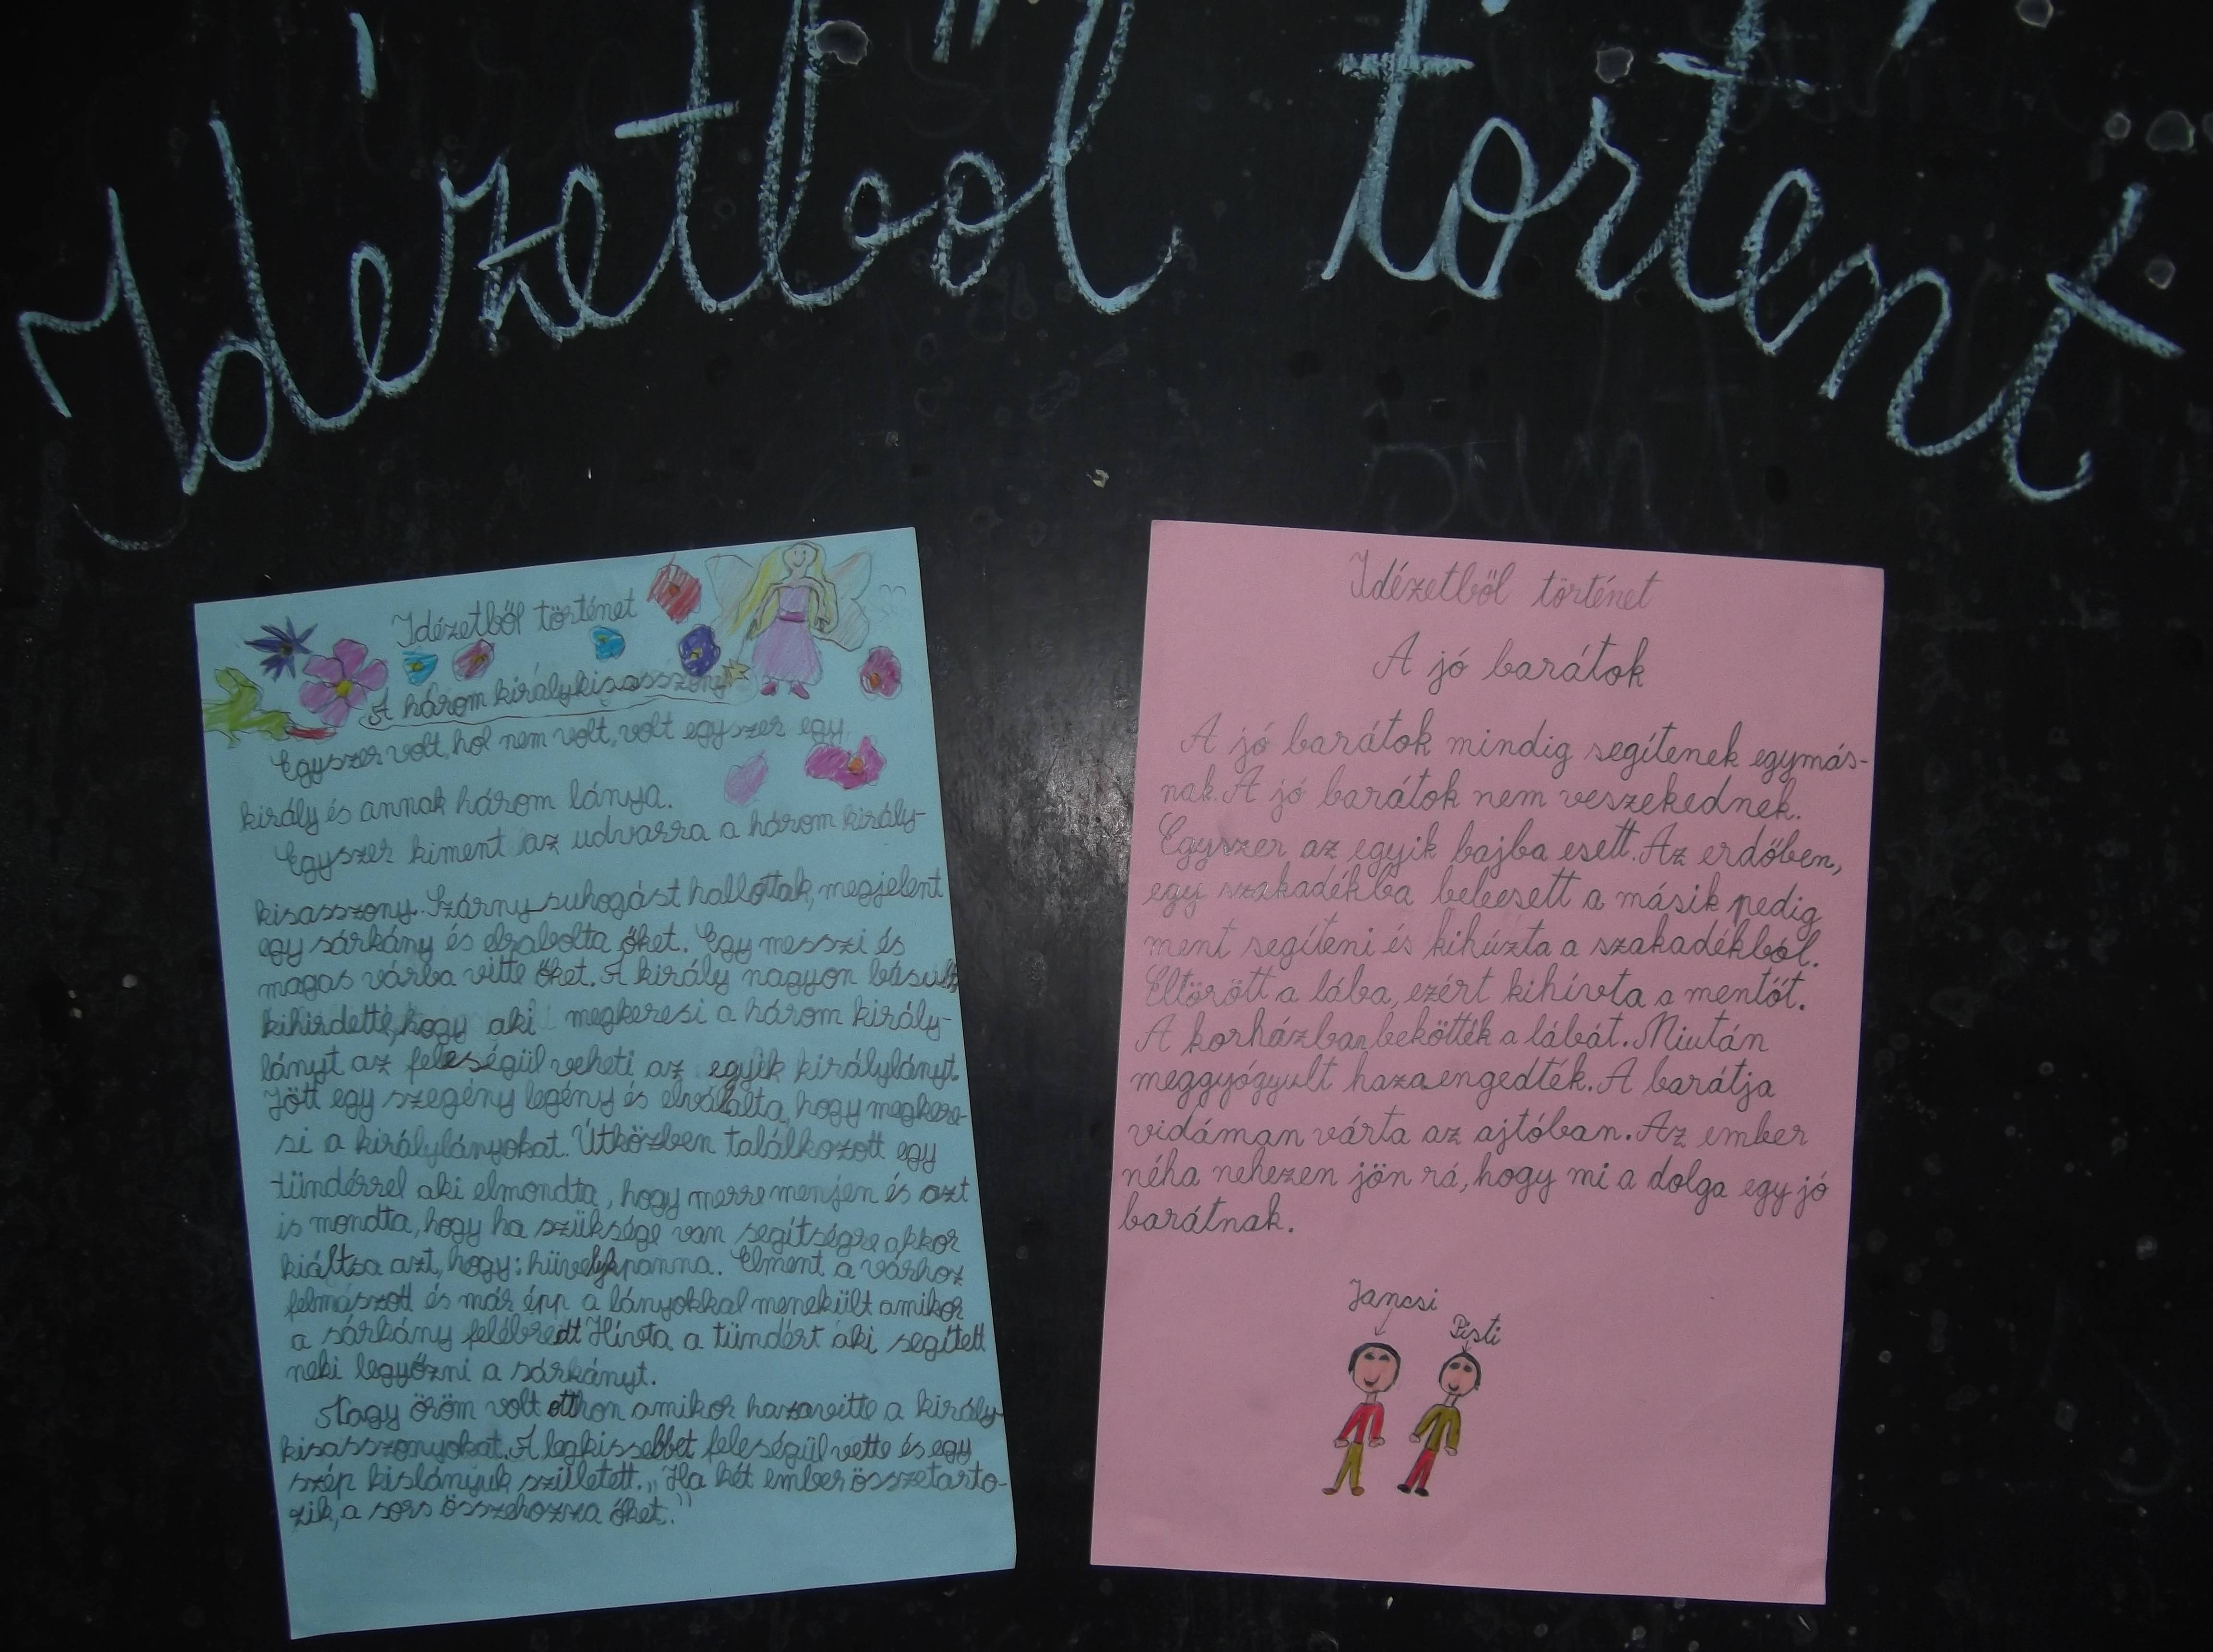 Idézetből történt
Idézetből történet
A három királykisasszony
Egyszer volt, hol nem volt, volt egyszer egy
király és annak három lánya.
Egyszer kiment az udvarra a három király-
kisasszony. Szárny suhogást hallottak, megjelent
egy sárkány és elrabolta őket. Egy messzi és
magas várba vitte őket. A király nagyon búsult
kihirdette, hogy aki megkeresi a három király-
lányt az feleségül veheti az egyik királylányt.
Jött egy szegény legény és elválalta, hogy megkere-
si a királylányokat. Útközben találkozott egy
tündérrel aki elmondta, hogy merre menjen és azt
is mondta, hogy ha szüksége van segítségre akkor
kiáltsa azt, hogy: hüvelykpanna. Elment a várhoz
felmászott és már épp a lányokkal menekült amikor
a sárkány felébredt Hívta a tündért aki segített
neki legyőzni a sárkányt.
Nagy öröm volt otthon amikor hazavitte a király-
kisasszonyokat. A legkissebbet feleségül vette és egy
szép kislányuk született. „Ha két ember összetarto-
zik, a sors összehozza őket."
Idézetből történet
A jó barátok
A jó barátok mindig segítenek egymás-
nak. A jó barátok nem veszekednek.
Egyszer az egyik bajba esett. Az erdőben,
egy szakadékba beleesett a másik pedig
ment segíteni és kihúzta a szakadékból.
Eltörött a lába, ezért kihívta a mentőt.
A korházban bekötték a lábát. Miután
meggyógyult hazaengedték. A barátja
vidáman várta az ajtóban. Az ember
néha nehezen jön rá, hogy mi a dolga egy jó
barátnak.
Jancsi
Pisti